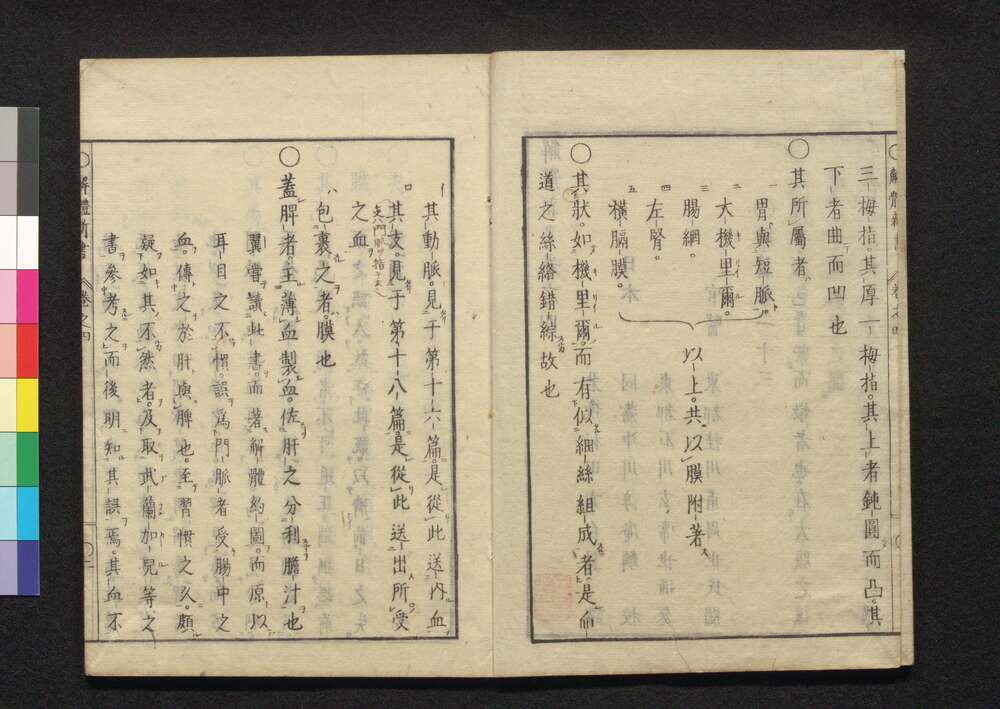 三梅指。其厚一梅指。其上者鈍圓而凸。其
下者曲而凹也
〇其所屬者。
一 胃與短脈。
二 大機里爾。
三 腸網。
四 左腎。
五 橫膈膜。
以上。共以膜附著。
〇其狀。如機里爾。而有似細絲組成者。是血
道之絲絡錯綜故也
イ 其動脈。見于第十六篇。是從此送內血
ロ 其支。見于第十八篇。是從此送出所受
之血
ハ 包裹之者。膜也
〇蓋脾者。主薄血製血。佐肝之分利膽汁也
翼嘗讀此書。而著解體約圖。而原以
耳目之不慣。誤爲門脈者受腸中之
血。傳之於肝與脾也。至習慣之久。頗
疑如其不然者。及取武蘭加兒等之
書。參考之。而後明知其誤焉。其血不
解體新書
卷之四